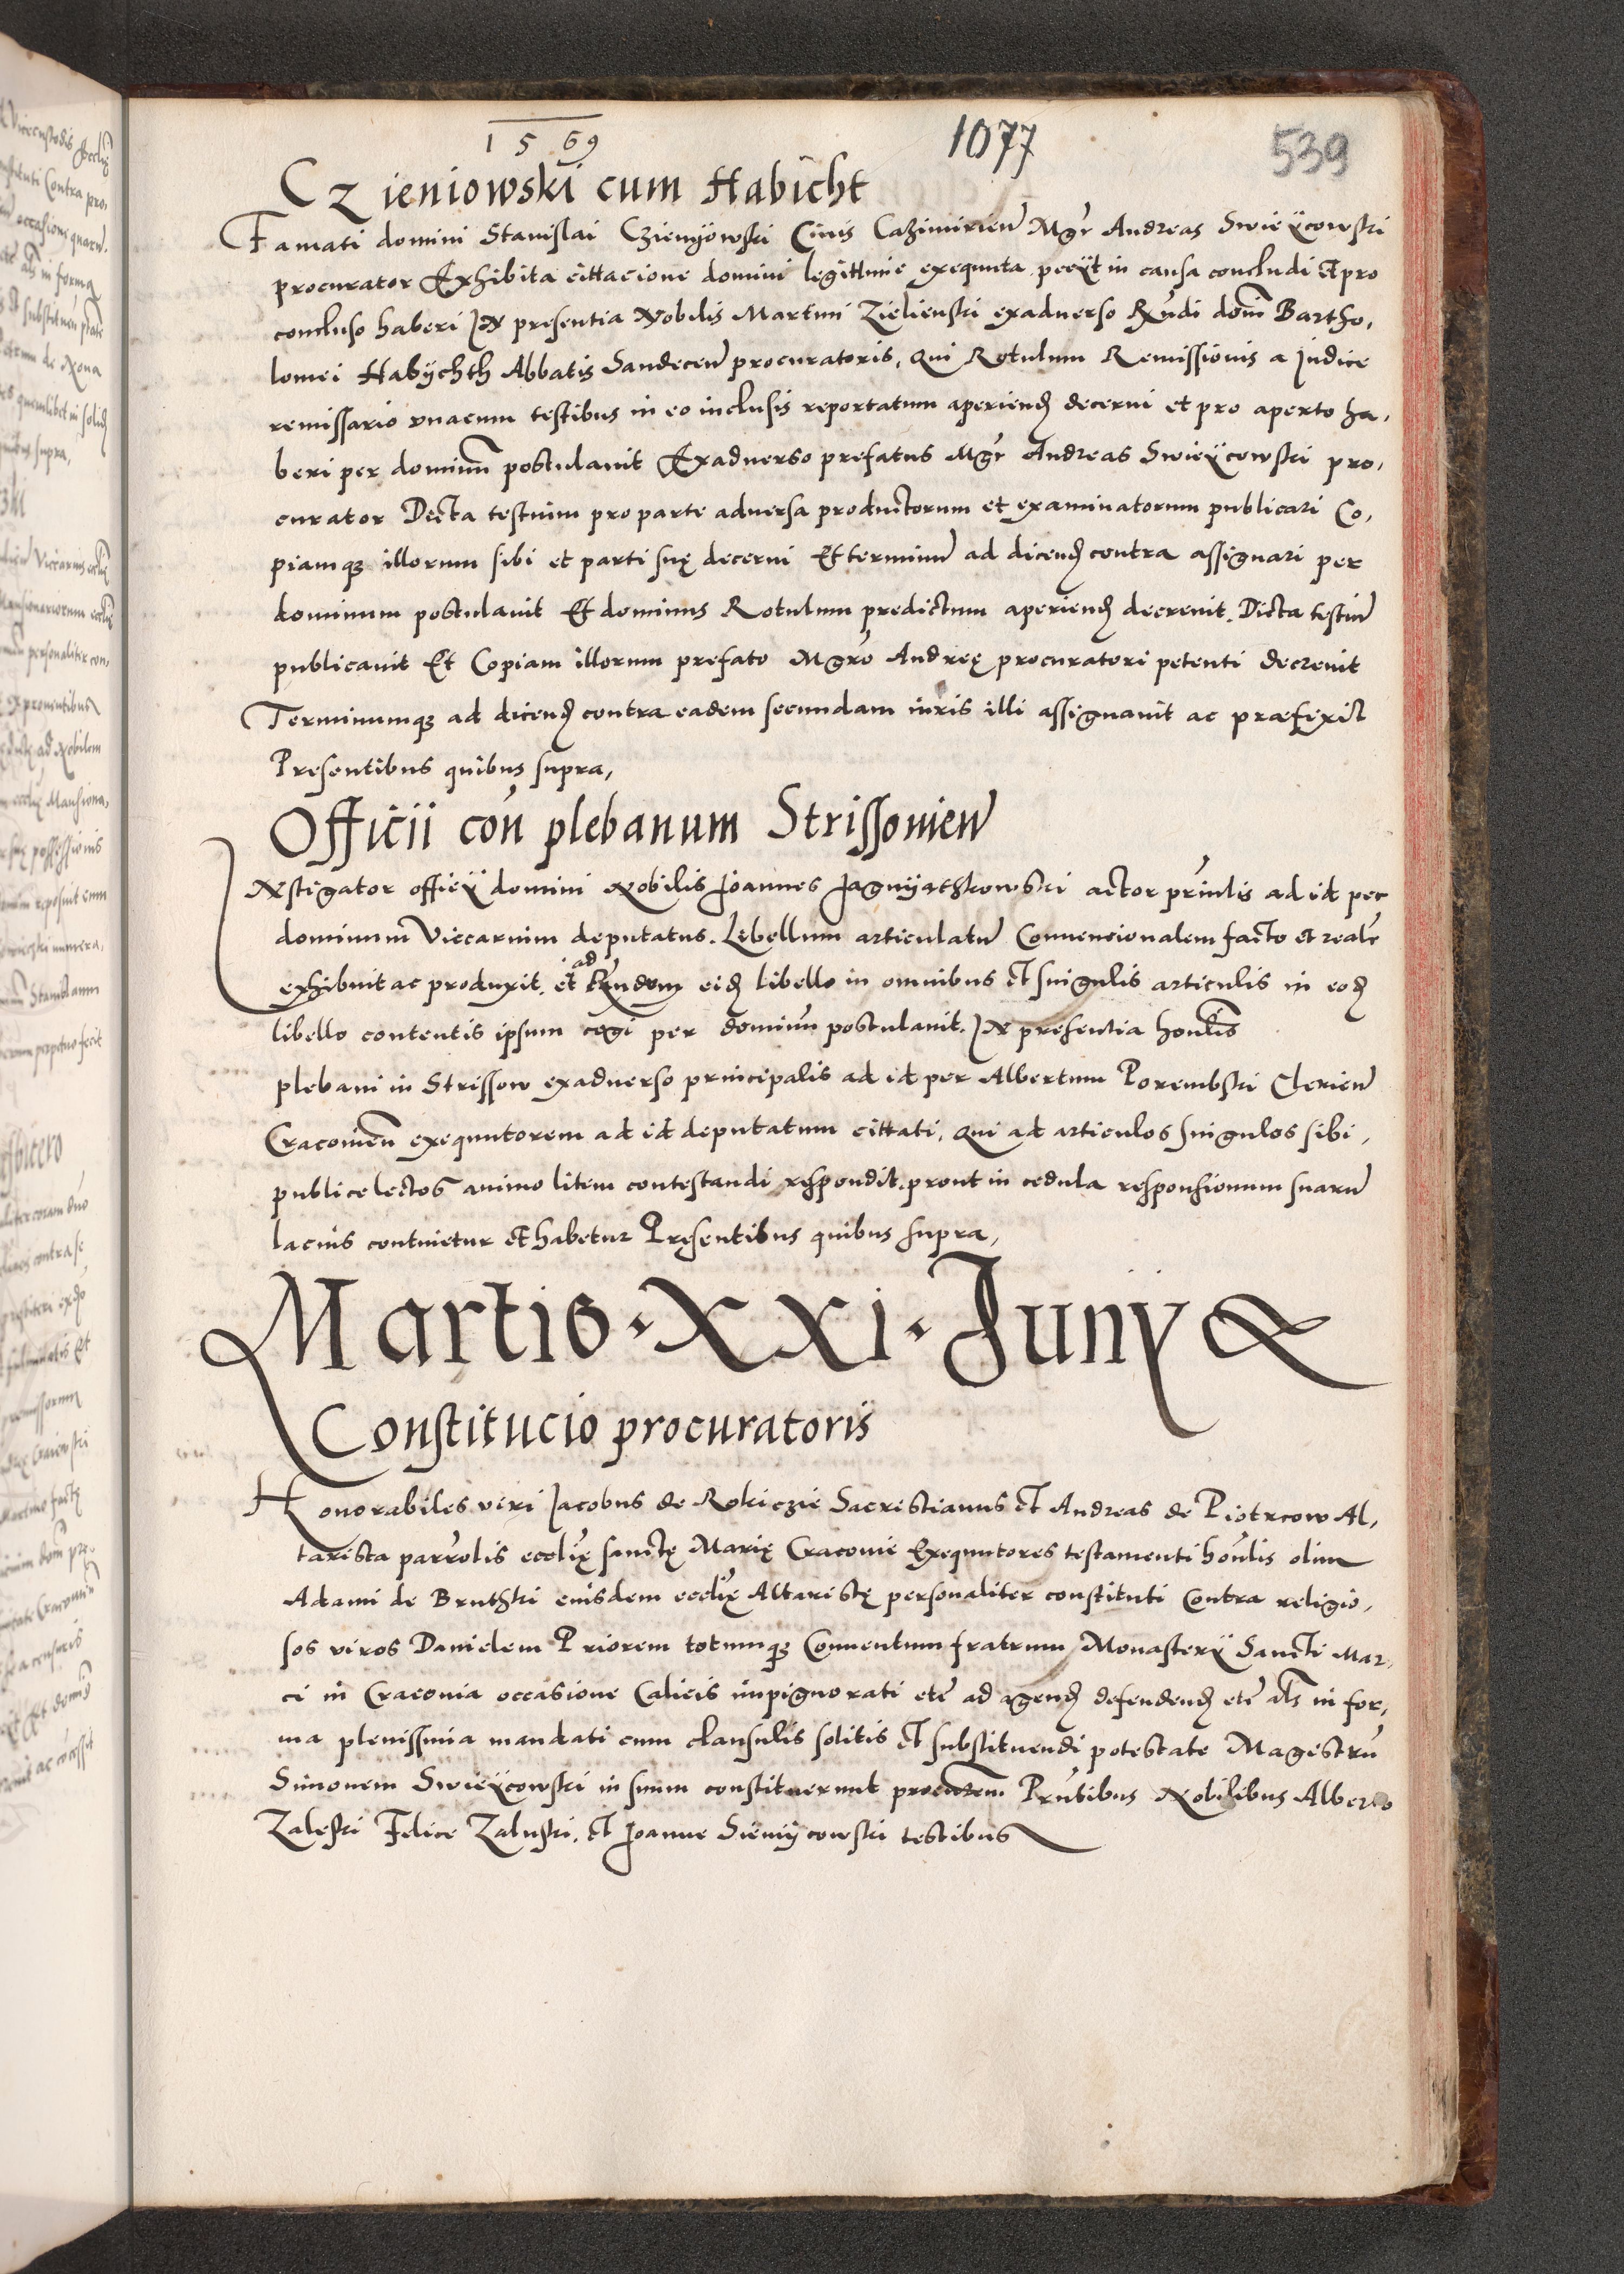 1569
1077
539
Czieniowski cum Habicht
Famati domini Stanislai Czienyowski Civis Cazimirien Mgr Andreas Swieÿcowski
procurator Exhibita cittacione domini legittime exequuta peeÿt in causa concludi et pro
concluso haberi In presentia Nobilis Martini Zielienski exadverso Rndi domi Bartho,
lomei Habÿchth Abbatis Sandecen procuratoris, qui Rotulum Remissionis a Judice
remissario vnacum testibus in eo inclusis reportatum aperiend decerni et pro aperto ha,
beri per dominum postulavit Exadverso prefatus Mgr Andreas Swieÿcowski pro,
curator Dicta testium pro parte adversa productorum et examinatorum publicari Co,
piamqz illorum sibi et parti suę decerni Et terminum ad dicend contra assignari per
dominum postulavit Et dominus Rotulum predictum aperiend decrevit. Dicta testium
publicavit Et Copiam illorum prefato Mgro Andreę procuratori petenti decrevit
Terminumqz ad dicend contra eadem secundam iuris illi assignavit ac præfixit
Presentibus quibus supra,
Officii con plebanum Strissovien
Instigator officÿ domini Nobilis Joannes Jagnÿathkowski actor prinlis ad id per
dominum Viccarium deputatus. Libellum articulatum Convencionalem facto et realr
exhibuit ac produxit. et ad Rndem eid libello in omnibus et singulis articulis in eod
libello contentis ipsum cogi per dominum postulavit. In presentia honlis
plebani in Strissow exadverso principalis ad id per Albertum Porembski Clericum
Cracovien exequutorem ad id deputatum cittati, qui ad articulos singulos sibi,
publice lectos animo litem contestandi respondit. prout in cedula responsionum suarum
lacius continetur et habetur Pręsentibus quibus supra,
Martis · XXI · Junÿ
Constitucio procuratoris
Honorabiles viri Jacobus de Rokiczie Sacristianus et Andreas de Piotrcow Al,
tarista parrolis ecclię sanctę Marię Cracovię Exequutores testamenti honlis olim
Adami de Bruthki eiusdem ecclię Altaristę personaliter constituti Contra religio,
sos viros Danielem Priorem totumqz Conventum fratrum Monasterÿ Sancti Mar,
ci in Cracovia occasione Calicis impignorati etc ad agend defendend etc als in for,
ma plenissima mandati cum clausulis solitis et substituendi potestate Magistrum
Simonem Swieÿcowski in suum constituerunt procurem Prntibus Nobilibus Alberto
Zaleski Felice Zaluski, et Joanne Sieniÿcowski testibus